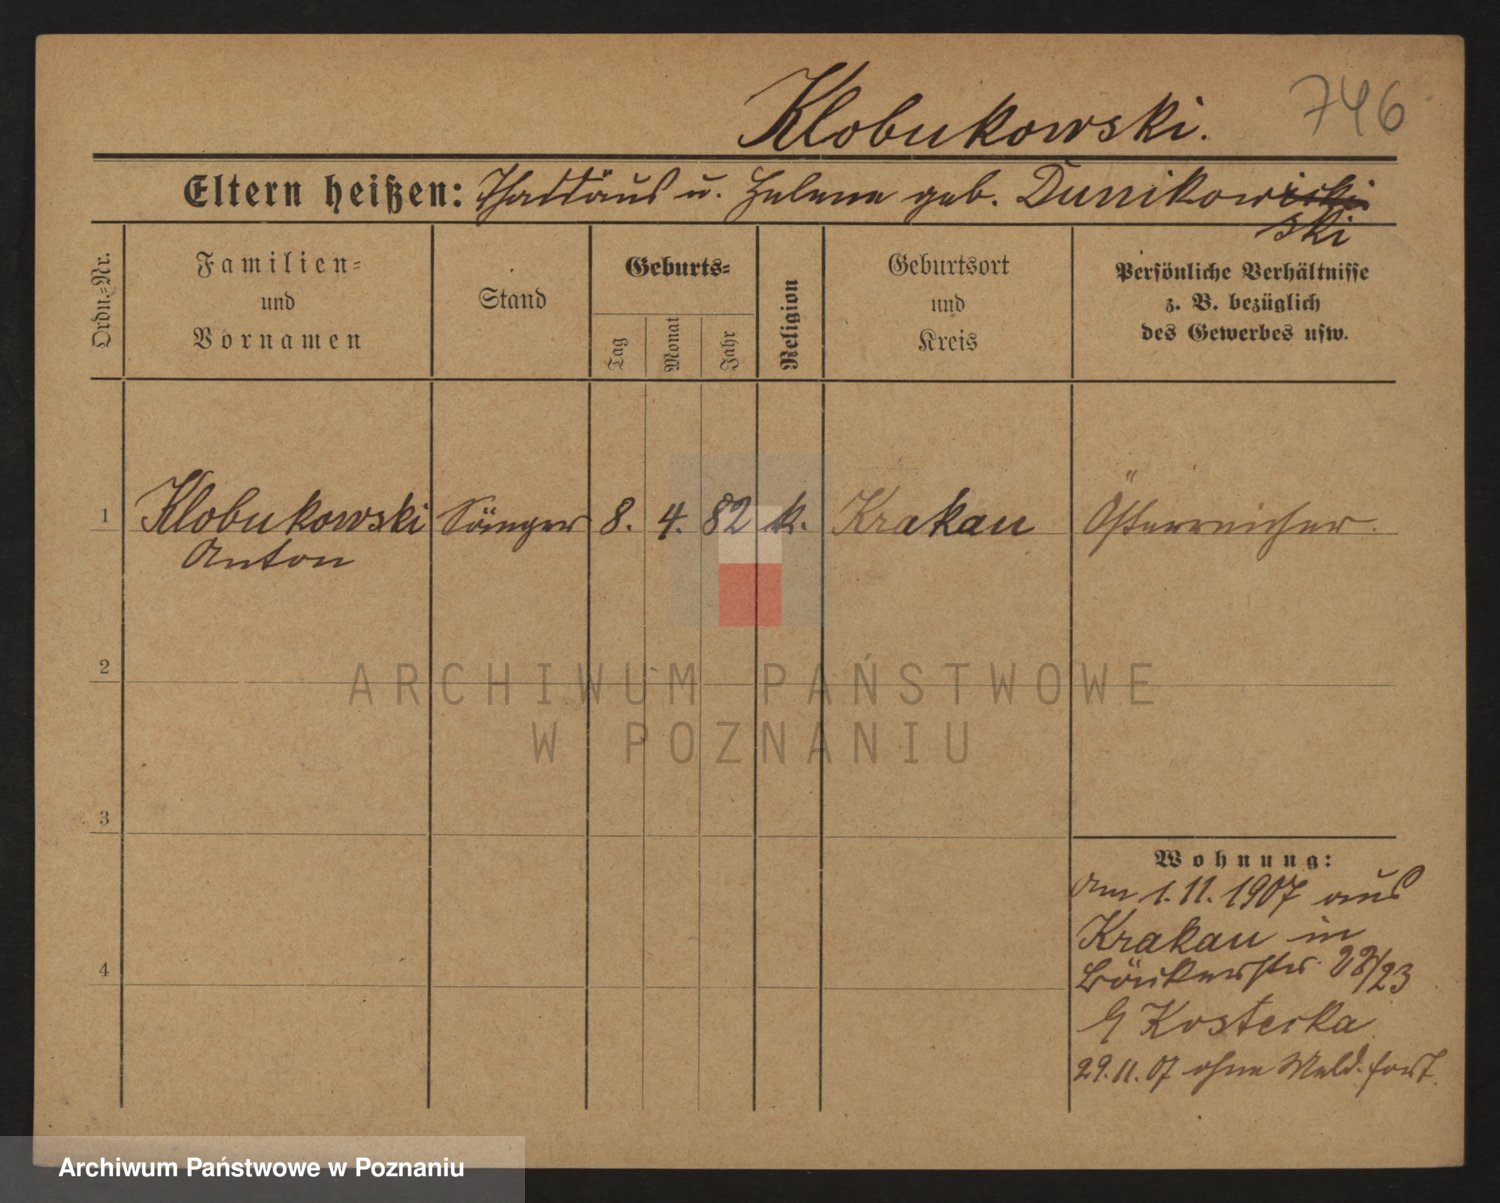 Klobukowski. 746
Eltern heißen: Thaddäus u. Helene geb. Dunikowicki
ski
Ordn.-Nr.
Familien-
und
Vornamen
Stand
Geburts-
Tag
Monat
Jahr
Religion
Geburtsort
und
Kreis
Persönliche Verhältnisse
z. B. bezüglich
des Gewerbes usw.
1 Klobukowski Sänger 8. 4. 82 k. Krakau Österreicher.
Anton
2
3
4
Wohnung:
Am 1.11.1907 aus
Krakau in
Bäckerstr. 22/23
Kostecka
29.11.07 ohne Meld. fort.
ARCHIWUM PAŃSTWOWE
W POZNANIU
Archiwum Państwowe w Poznaniu